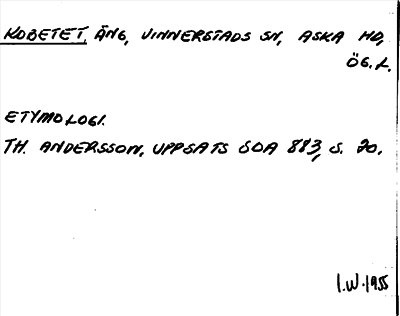 KOBETET, ÄNG, VINNERSTADS SN, ASKA HD,
ÖG.L.
ETYMOLOGI.
TH. ANDERSSON, UPPSATS SOA 883, S. 20.
I.W. 1955